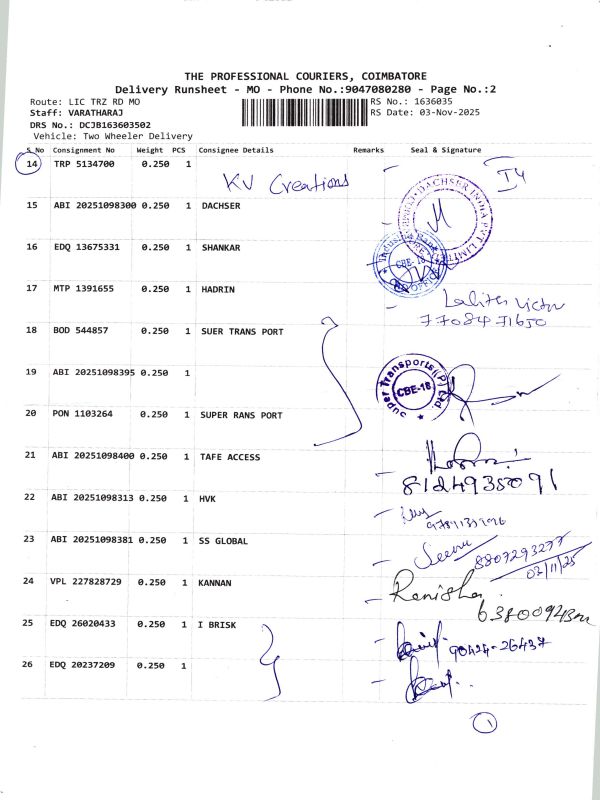 THE PROFESSIONAL COURIERS, COIMBATORE
Delivery Runsheet - MO - Phone No.:9047080280 - Page No.:2
Route: LIC TRZ RD MO RS No.: 1636035
Staff: VARATHARAJ RS Date: 03-Nov-2025
DRS No.: DCJB163603502
Vehicle: Two Wheeler Delivery
S.No Consignment No Weight PCS Consignee Details Remarks Seal & Signature
14 TRP 5134700 0.250 1
KV Creations
15 ABI 20251098300 0.250 1 DACHSER
DACHSER INDIA PVT LIMITED
16 EDQ 13675331 0.250 1 SHANKAR
CBE-18
17 MTP 1391655 0.250 1 HADRIN
7708471650
18 BOD 544857 0.250 1 SUER TRANS PORT
19 ABI 20251098395 0.250 1
Super Transports (P) Ltd.
CBE-18
20 PON 1103264 0.250 1 SUPER RANS PORT
21 ABI 20251098400 0.250 1 TAFE ACCESS
8124935091
22 ABI 20251098313 0.250 1 HVK
23 ABI 20251098381 0.250 1 SS GLOBAL
8807293277
03/11/25
24 VPL 227828729 0.250 1 KANNAN
Ranisha
25 EDQ 26020433 0.250 1 I BRISK
90424-26437
26 EDQ 20237209 0.250 1
1